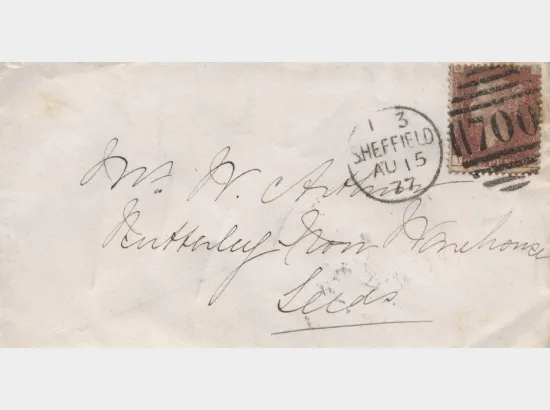 1 3
SHEFFIELD
AU 15
77
700
Mr. W.
Butterley Iron Warehouse
Leeds